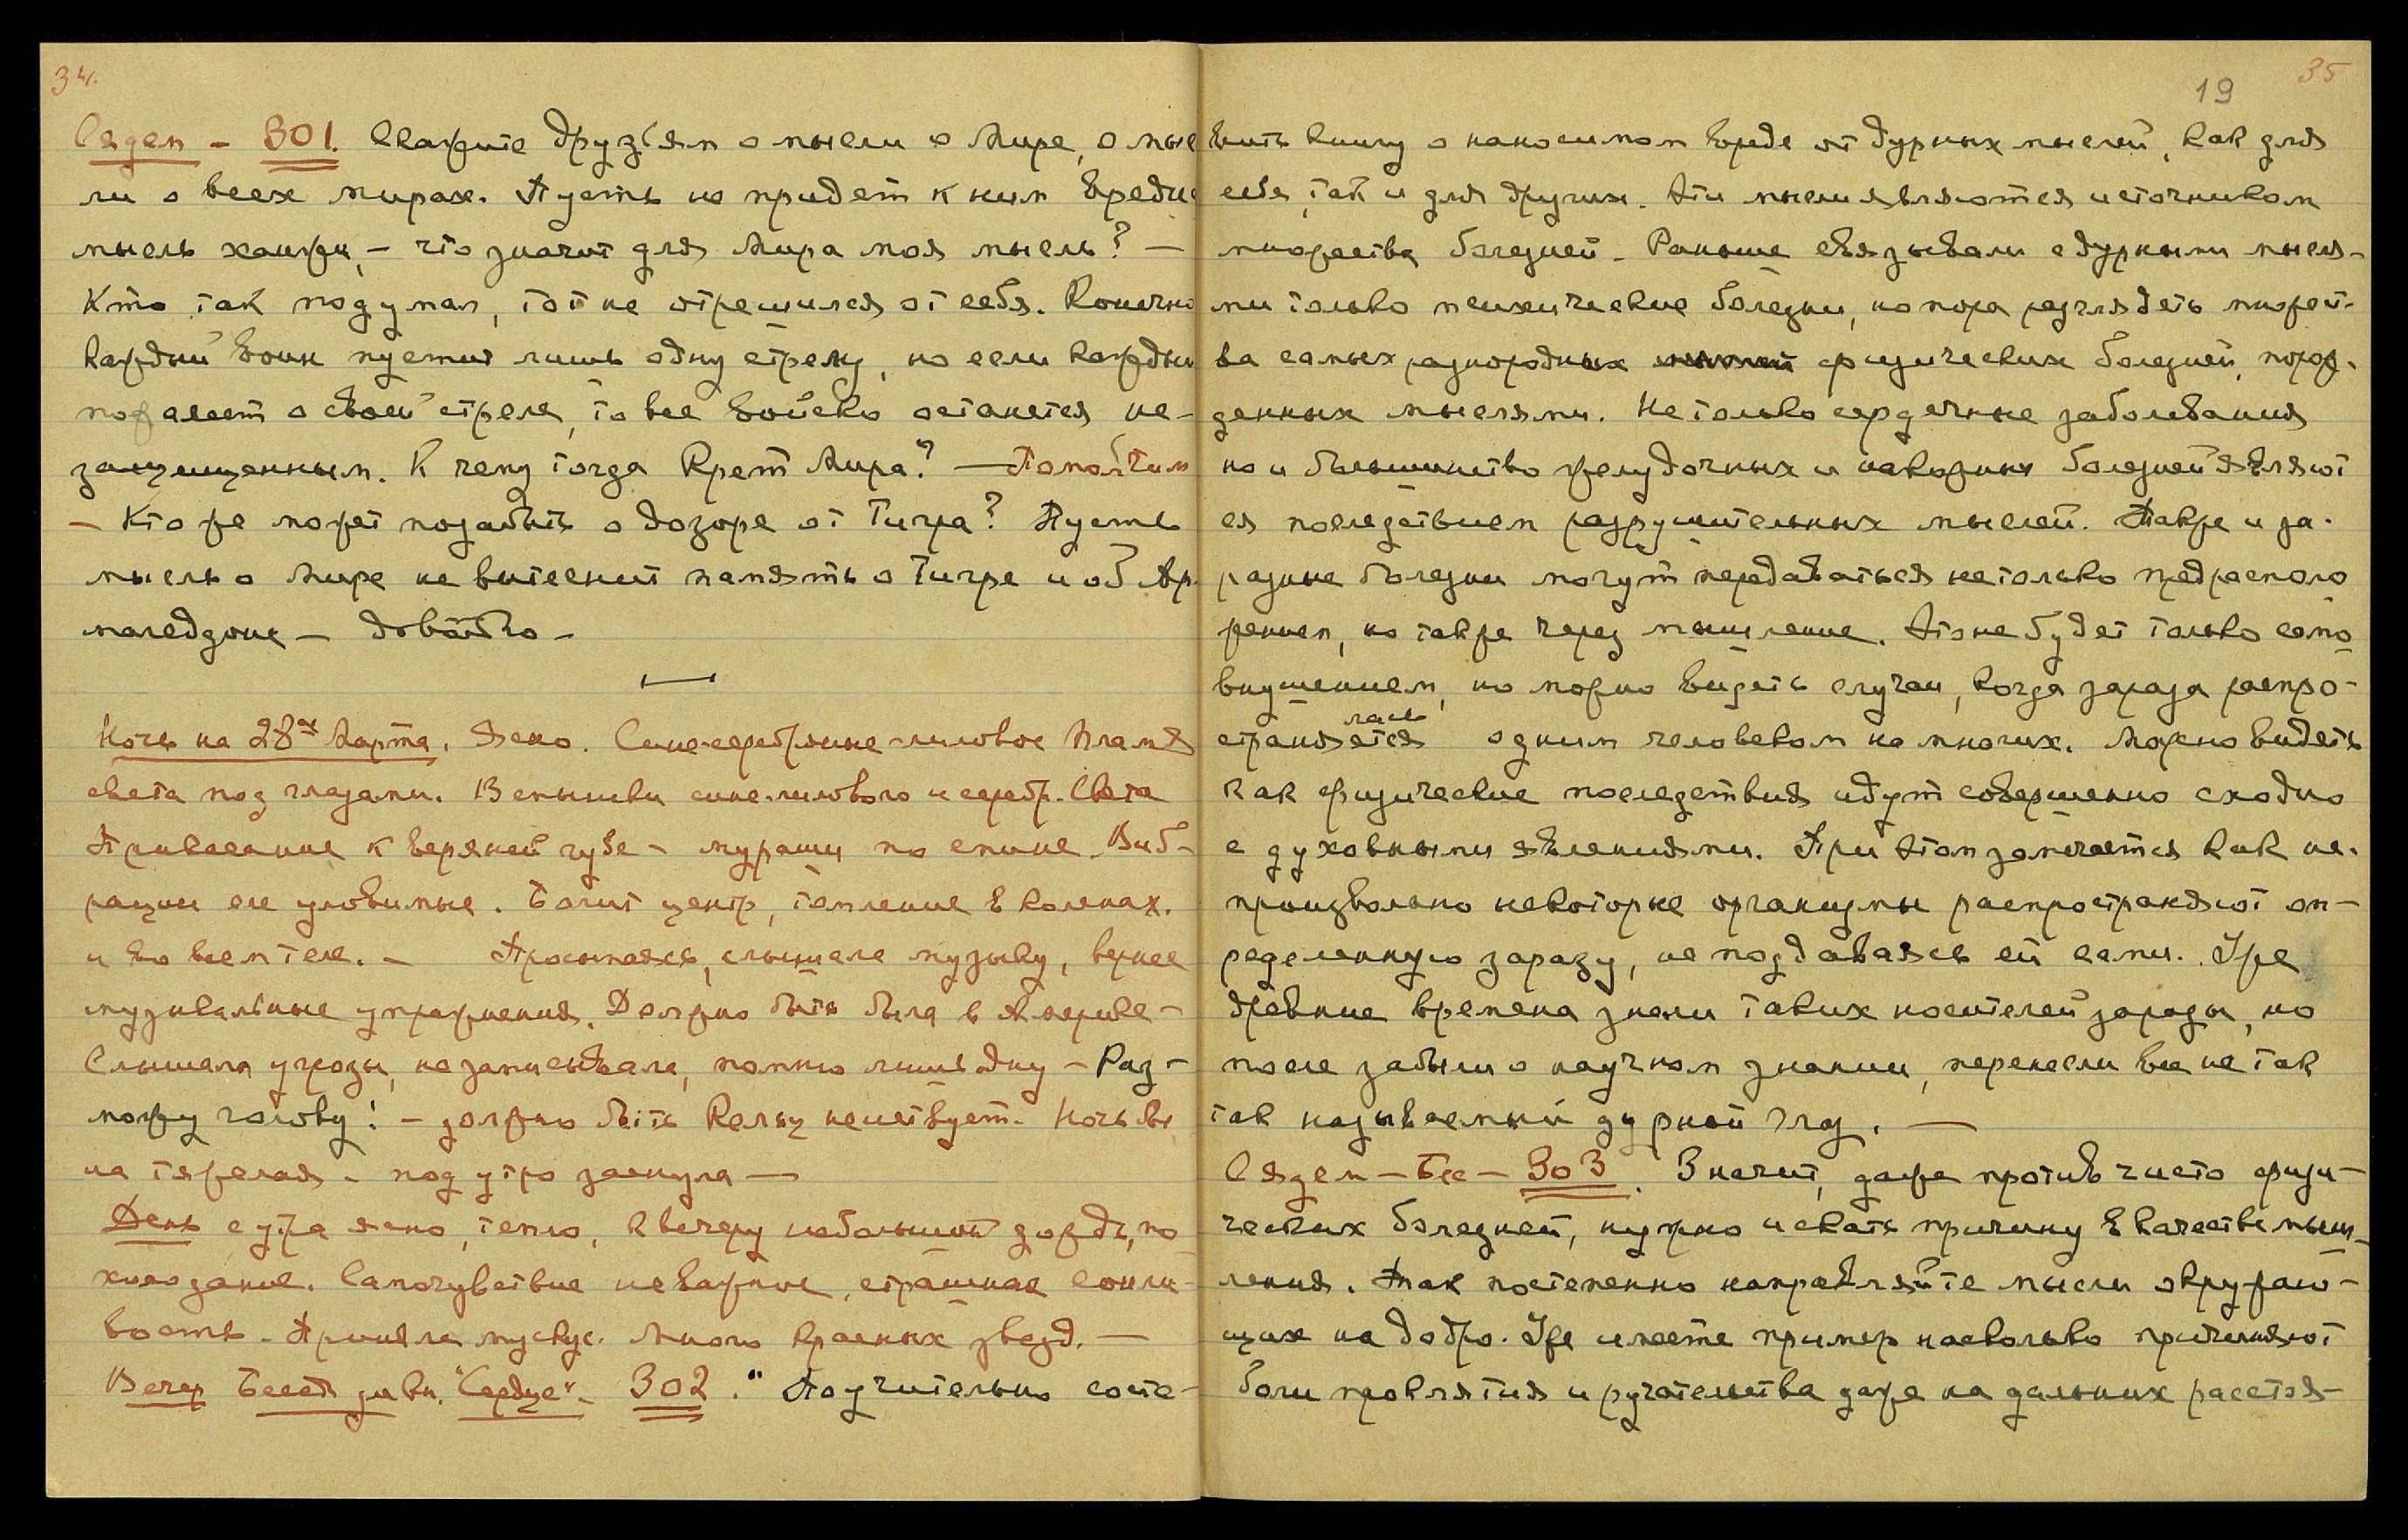 34.
Сядем – 301. Скажите друзьям о мысли о Мире, о мыс
ли о всех мирах. Пусть не придет к ним вредне
мысль ханжи, – что значит для Мира моя мысль? –
Кто так подумал, тот не отрешился от себя. Конечно
каждый воин пустит лишь одну стрелу, но если кажды
пожалеет о своей стреле, то все войско останется не–
защищенным. К чему тогда Крест Мира? –
– Кто же может позабыть о дозоре от Тигра? Пусть
мысль о Мире не вытеснит память о Тигре и об Ар.
магеддоне – довольно –
Ночь на 28ое Марта. Ясно. Сине-серебряное лиловое пламя
света под глазами. Вспышки сине-лилового и серебр. Света
Прикасание к верхней губе – мураши по спине. Виб–
рации еле уловимые. Болит центр, томление в коленах.
и во всем теле. – Просыпаясь, слышала музыку, вернее
музыкальные упражнения. Должно быть была в Америке –
Слышала угрозы, не записывала, помню лишь одну – Раз–
можу голову! – должно быть Кельц неистует. Ночь
на тяжелая – под утро заснула –
День с утра ясно, тепло, к вечеру небольшой дождь, по
холодание. Самочувствие неважное, страшная сонли–
вость. Приняла мускус. Много красных звезд. –
Вечер Беседа дивн. "Сердце". 302. " Поучительно соста–
19
35
вить книгу о наносимом вреде от дурных мыслей, как для
себя, так и для других. Эти мысли являются источником
множества болезней. Раньше связывали с дурными мысля–
ми только психические болезни, но пора разглядеть множест–
ва самых разнородных физических болезней, порож–
денных мыслями. Не только сердечные заболевания
но и большинство желудочных и накожных болезней являют
ся последствием разрушительных мыслей. Также и за–
разные болезни могут передаваться не только предраспол
жением, но также через мышление. Это не будет только само
внушением, но можно видеть случаи, когда зараза распро–
лась
страняется одним человеком на многих. Можно видеть
как физические последствия идут совершенно сходно
с духовными явлениями. При этом замечается как не–
произвольно некоторые организмы распространяют оп–
ределенную заразу, не поддаваясь ей сами. Уже
древние времена знали таких носителей заразы, но
после забыли о научном знании, перенесли все не так
так называемый дурной глаз. –
Сядем – Бес – 303. Значит, даже против чисто физи–
ческих болезней, нужно искать причину в качестве мыш–
ления. Так постепенно направляйте мысли окружаю–
щих на добро. Уже имеете пример насколько причиняют
боли проклятия и ругательства даже на дальних расстоя–